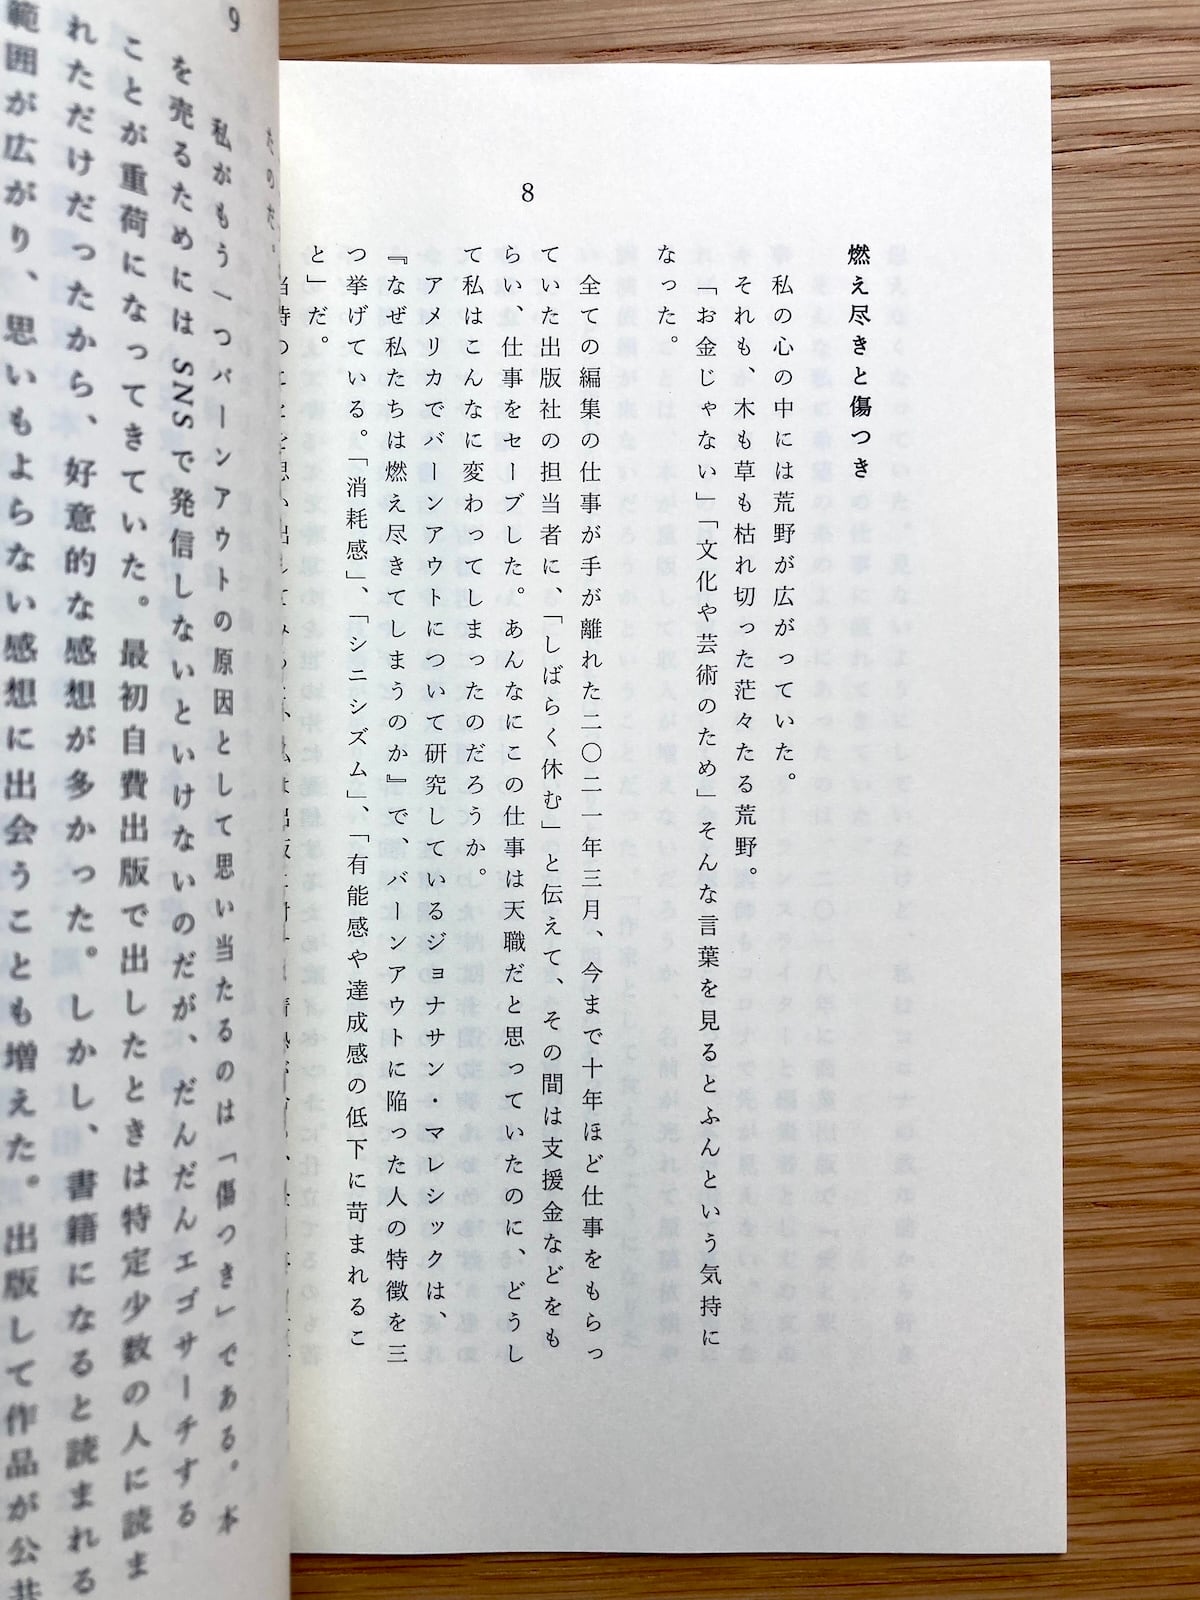 8
燃え尽きと傷つき
私の心の中には荒野が広がっていた。
それも、木も草も枯れ切った茫々たる荒野。
「お金じゃない」「文化や芸術のため」そんな言葉を見るとふんという気持に
なった。
全ての編集の仕事が手が離れた二〇二一年三月、今まで十年ほど仕事をもらっ
ていた出版社の担当者に、「しばらく休む」と伝えて、その間は支援金などをも
らい、仕事をセーブした。あんなにこの仕事は天職だと思っていたのに、どうし
て私はこんなに変わってしまったのだろうか。
アメリカでバーンアウトについて研究しているジョナサン・マレシックは、
『なぜ私たちは燃え尽きてしまうのか』で、バーンアウトに陥った人の特徴を三
つ挙げている。「消耗感」、「シニシズム」、「有能感や達成感の低下に苛まれるこ
と」だ。
9
たのだ。
私がもう一つバーンアウトの原因として思い当たるのは「傷つき」である。本
を売るためにはSNSで発信しないといけないのだが、だんだんエゴサーチする
ことが重荷になってきていた。最初自費出版で出したときは特定少数の人に読ま
れただけだったから、好意的な感想が多かった。しかし、書籍になると読まれる
範囲が広がり、思いもよらない感想に出会うことも増えた。出版して作品が公共